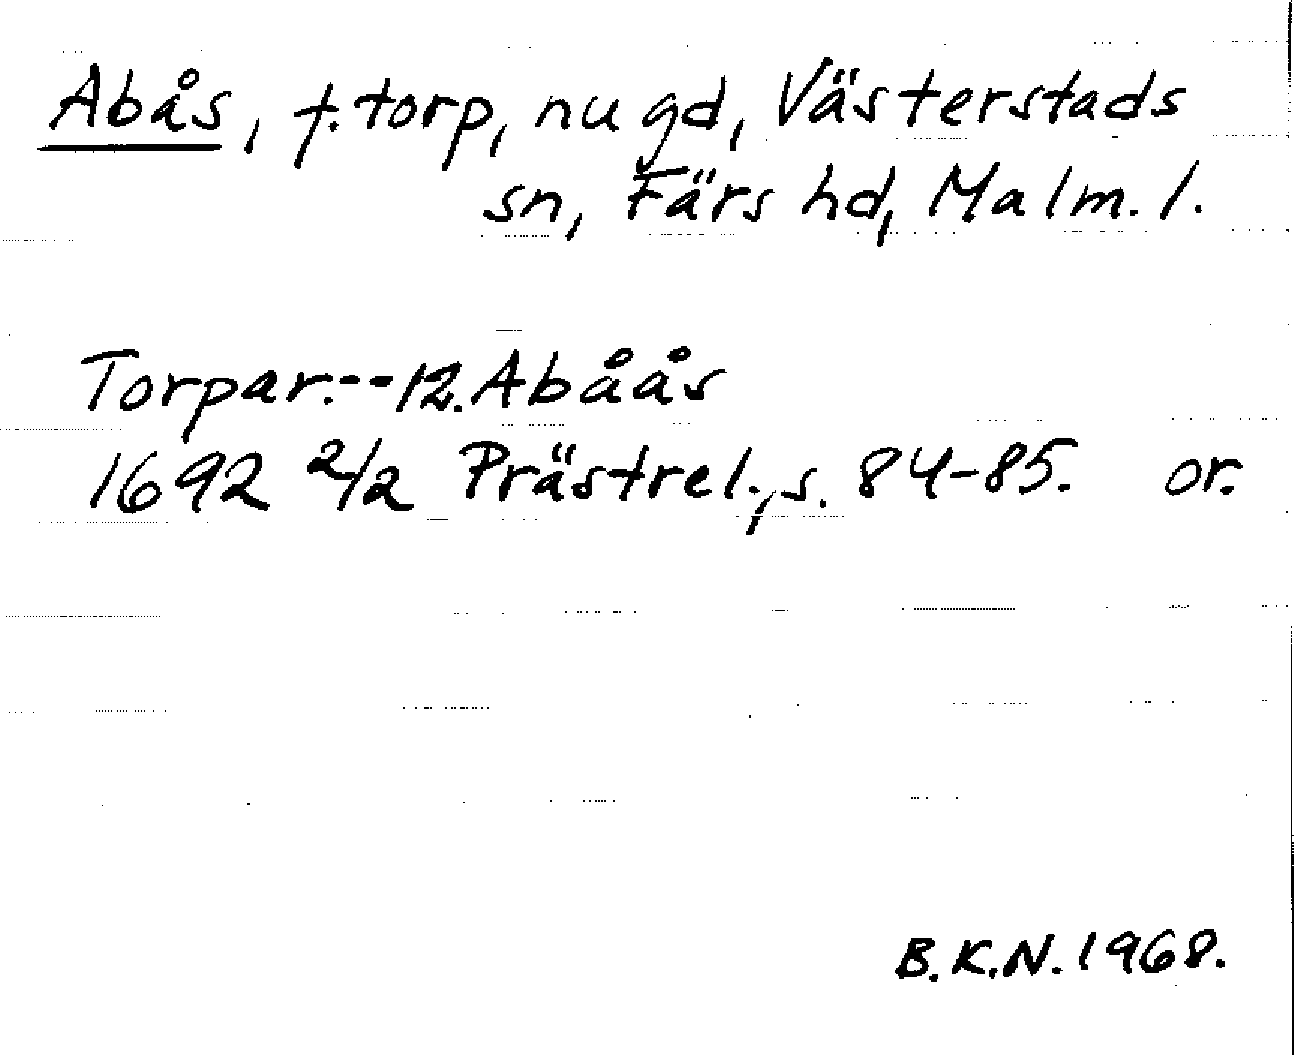 Abås, f. torp, nu gd, Västerstads
sn, Färs hd, Malm. l.
Torpar.--12. Abåås
1692 2/2 Prästrel., s. 84-85. or.
B.K.N. 1968.